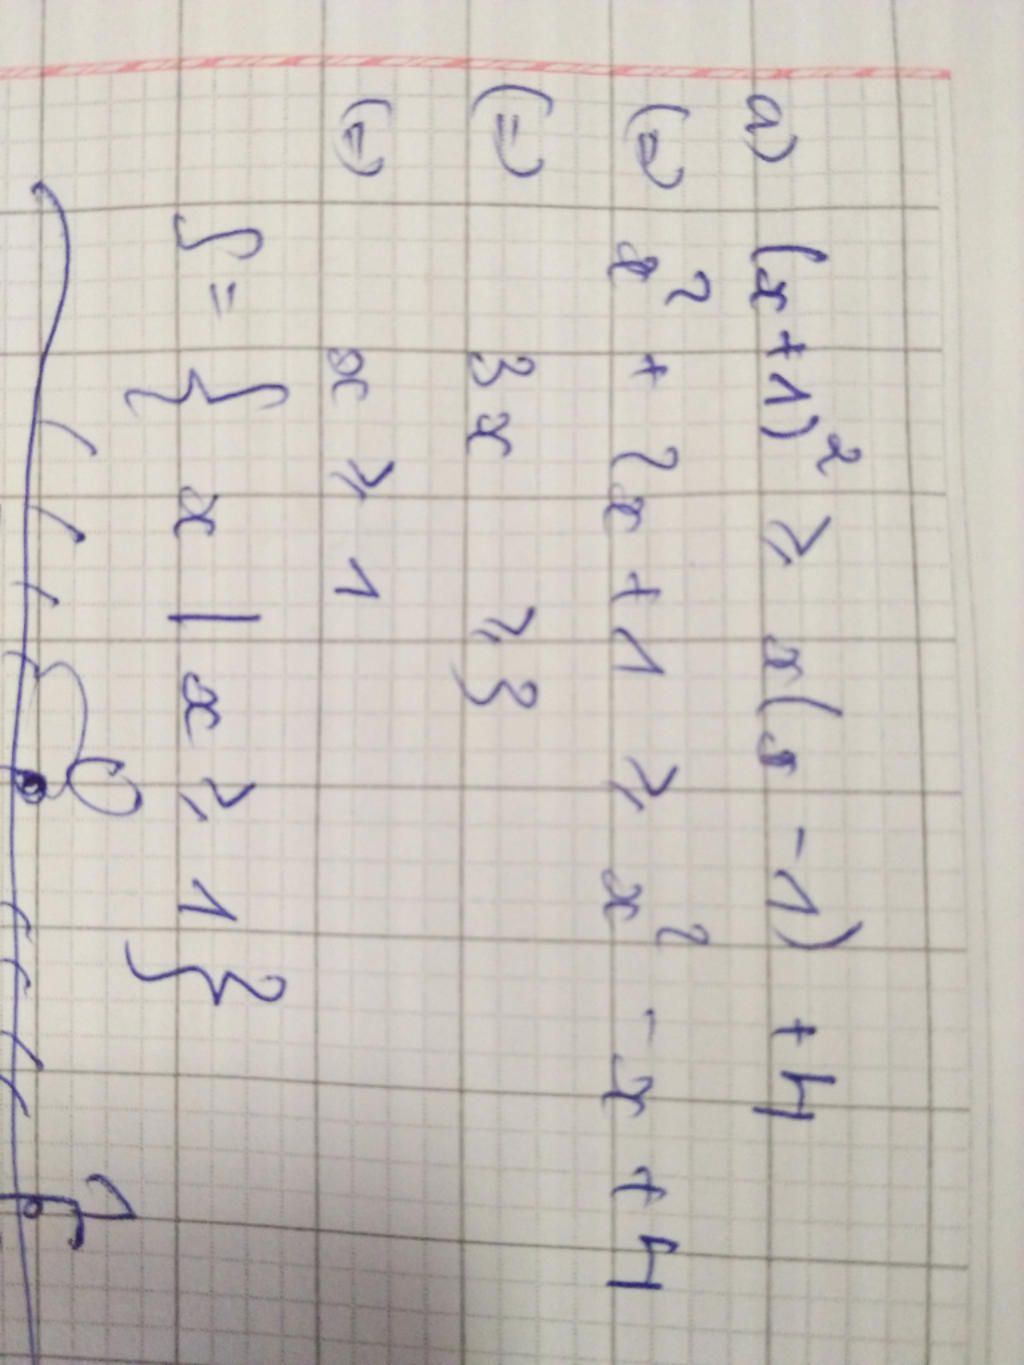 a) (x+1)² ⩾ x(x-1) +4
(=) x² + 2x +1 ⩾ x² -x +4
(=) 3x ⩾ 3
(=) x ⩾ 1
S = { x | x ⩾ 1 }
0 1